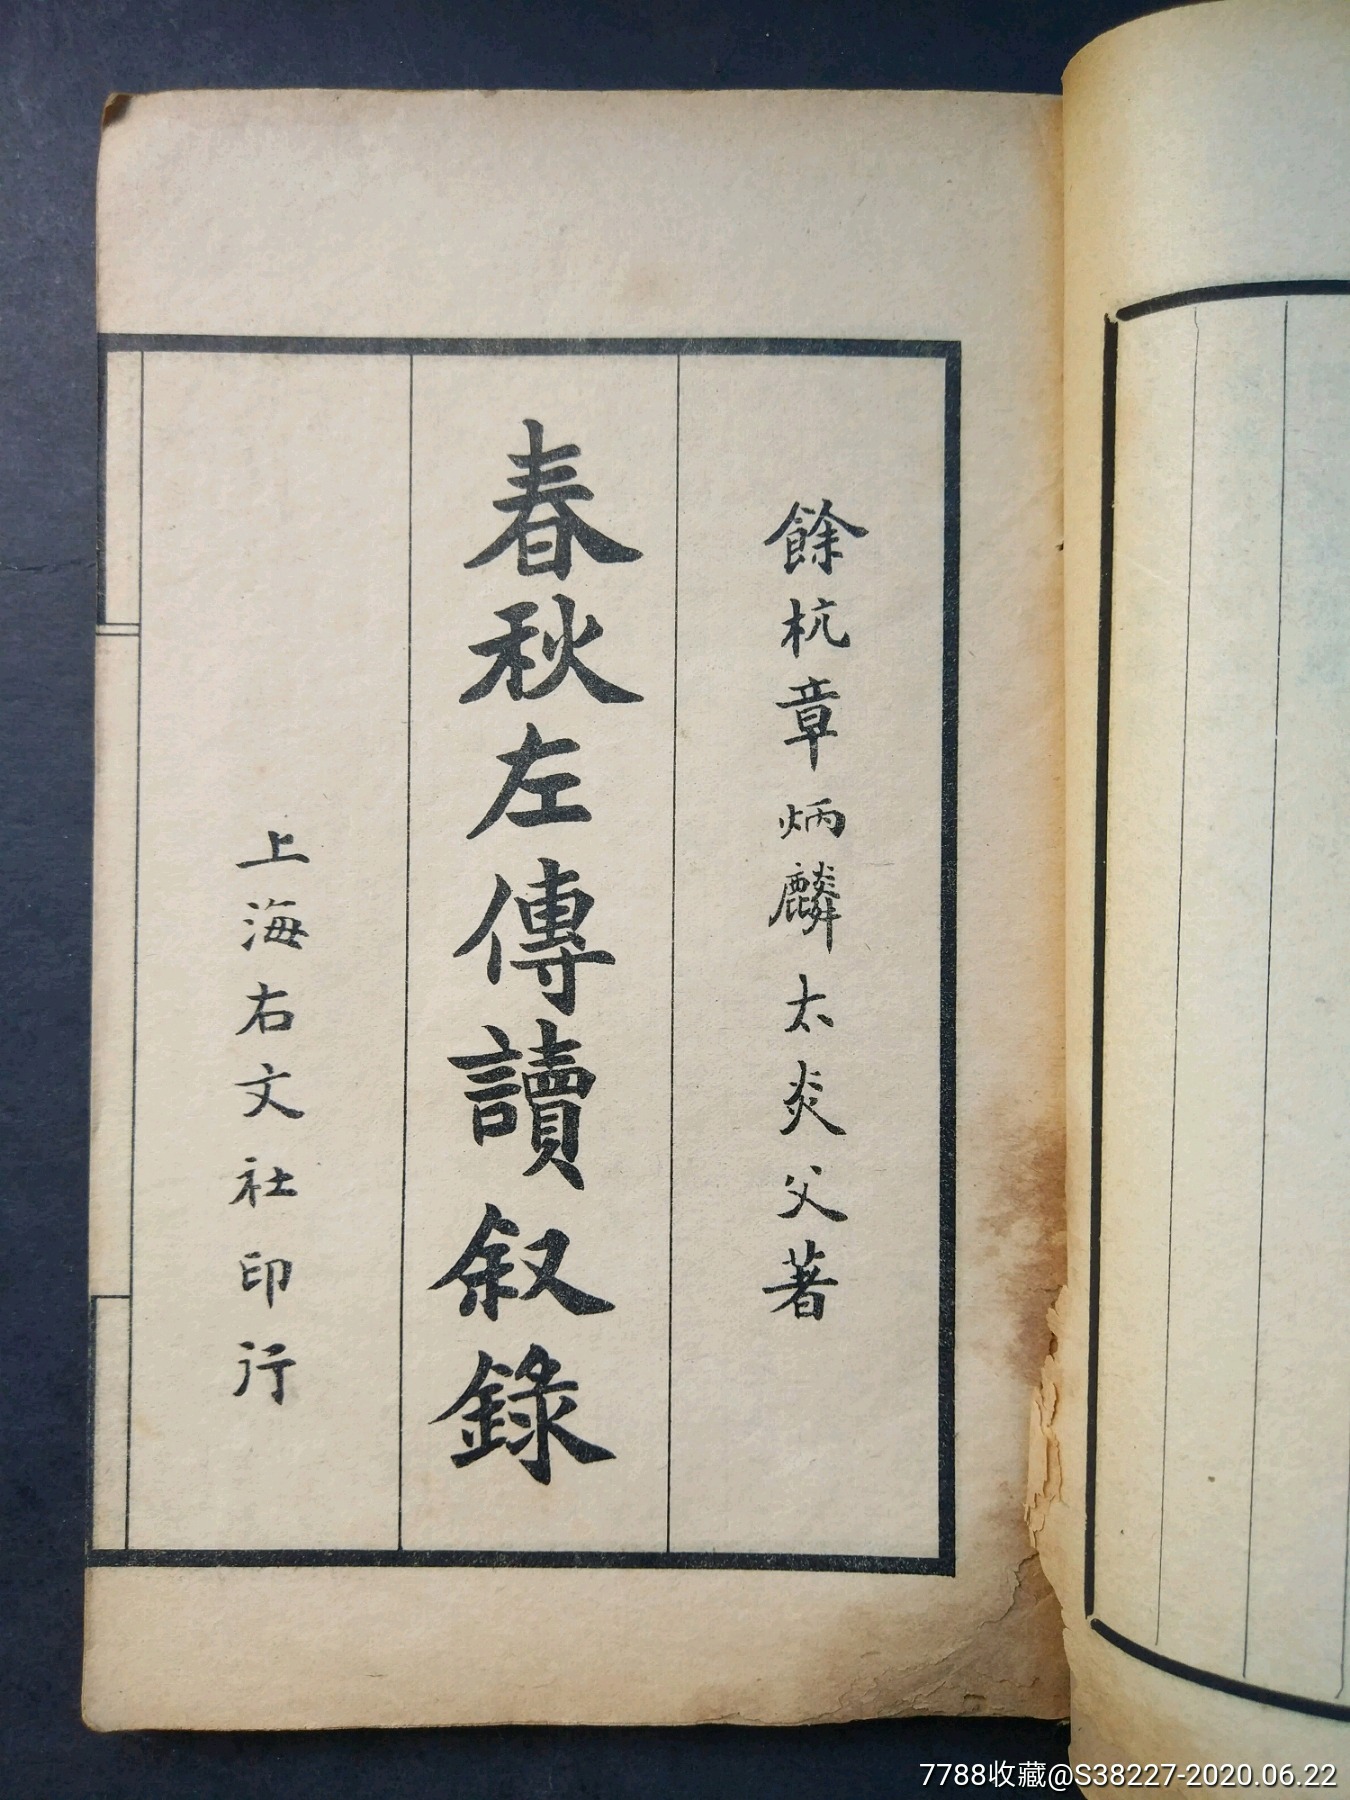 餘杭章炳麟太炎父著
春秋左傳讀叙錄
上海右文社印行
7788收藏@S38227-2020.06.22